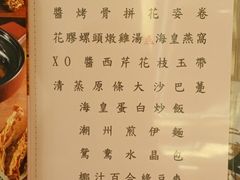 醬烤骨拼花姿卷
花膠螺頭燉雞湯 海皇燕窩
XO醬西芹花枝玉帶
清蒸原條大沙巴躉
海皇蛋白炒飯
潮州煎伊麵
鴛鴦水晶包
椰汁百合綠豆爽